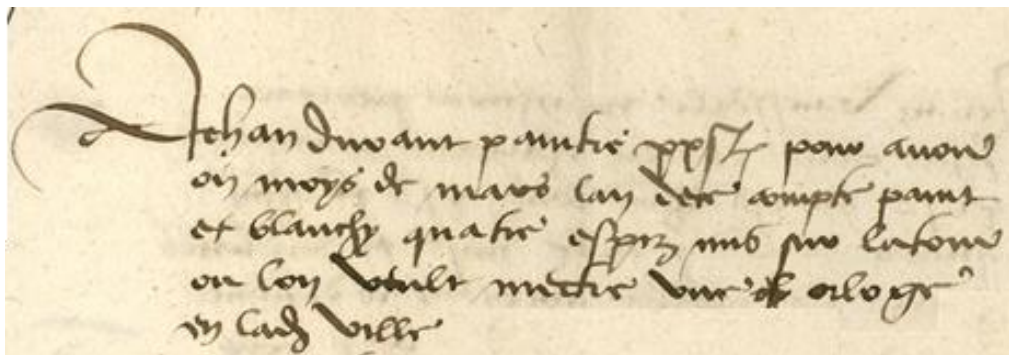 Jehan Durant paintre xxxs tz pour avoir
ou moys de mars lan de ce compte paint
et blanchy quatre espiz mis sur la tour
ou lon veult mectre une orloge
en lad ville